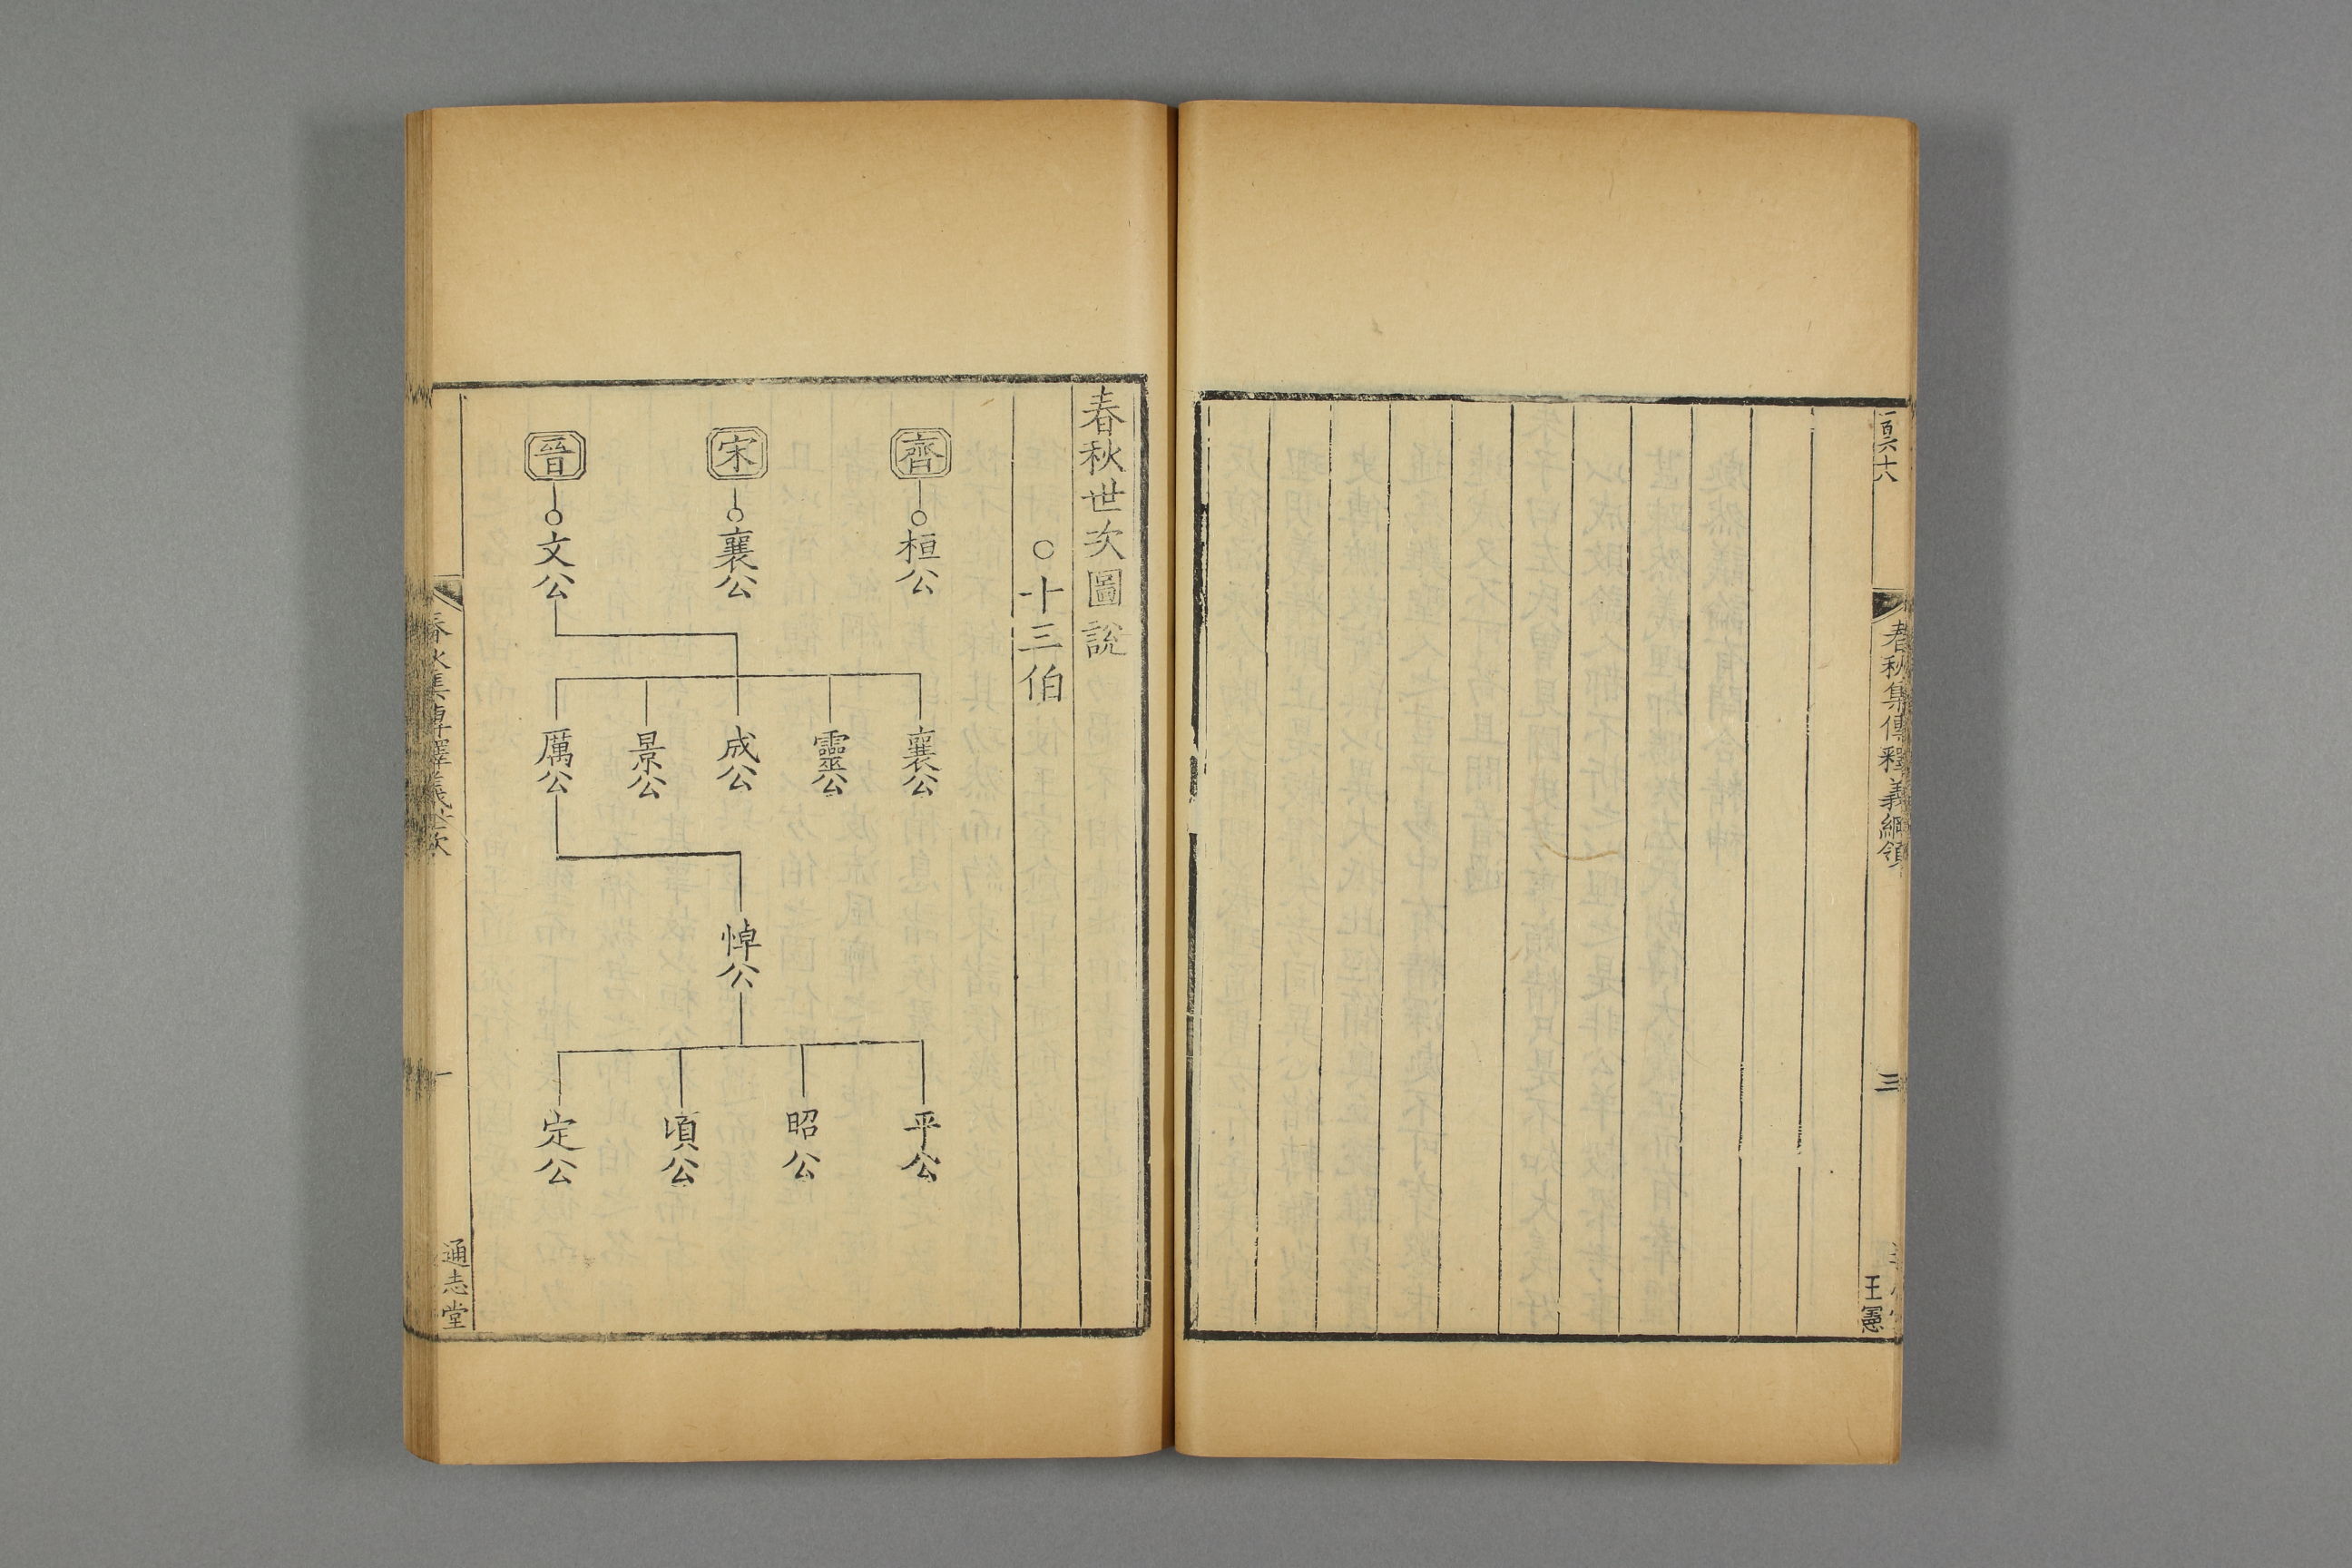 百六十八
春秋集傳釋義綱領
三
王憲
春秋世次圖說
○十三伯
齊
桓公
宋
襄公
晉
文公
襄公
靈公
成公
景公
厲公
悼公
平公
昭公
頃公
定公
春秋集傳釋義世次
一
通志堂